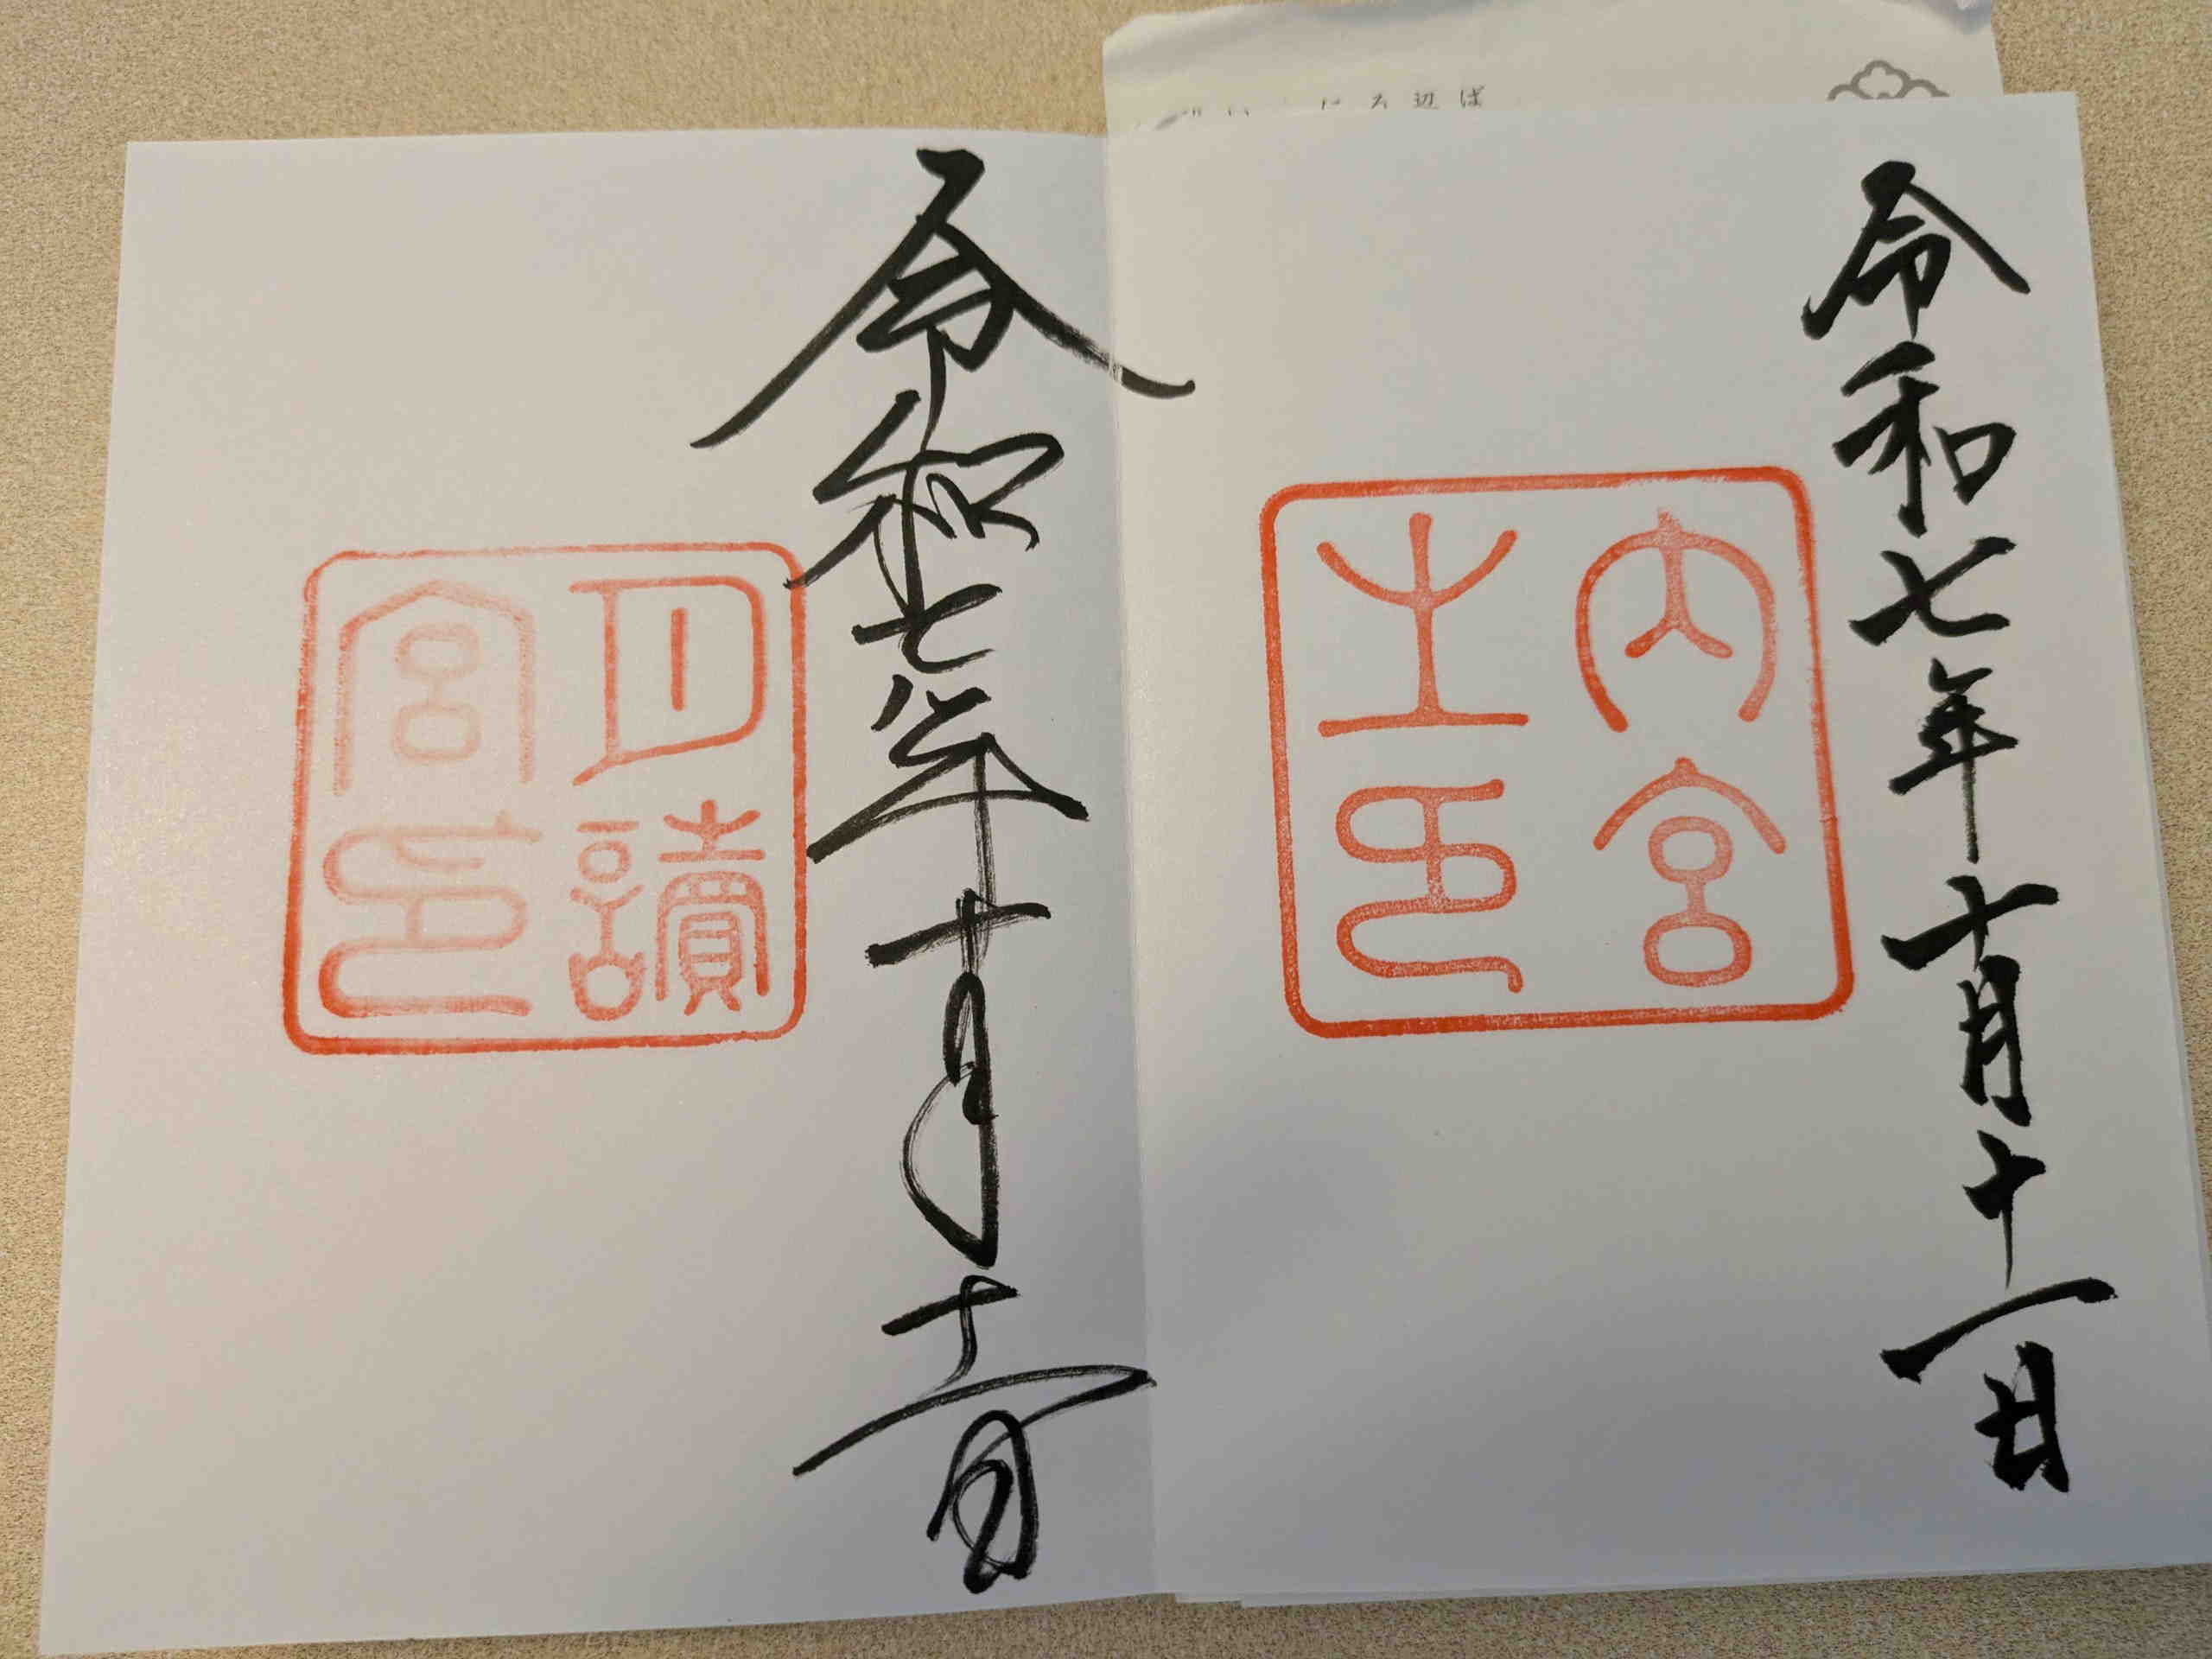 ば
辺
令和七年十月十一日
内宮
之印
令和七年十月十一日
月讀
宮印